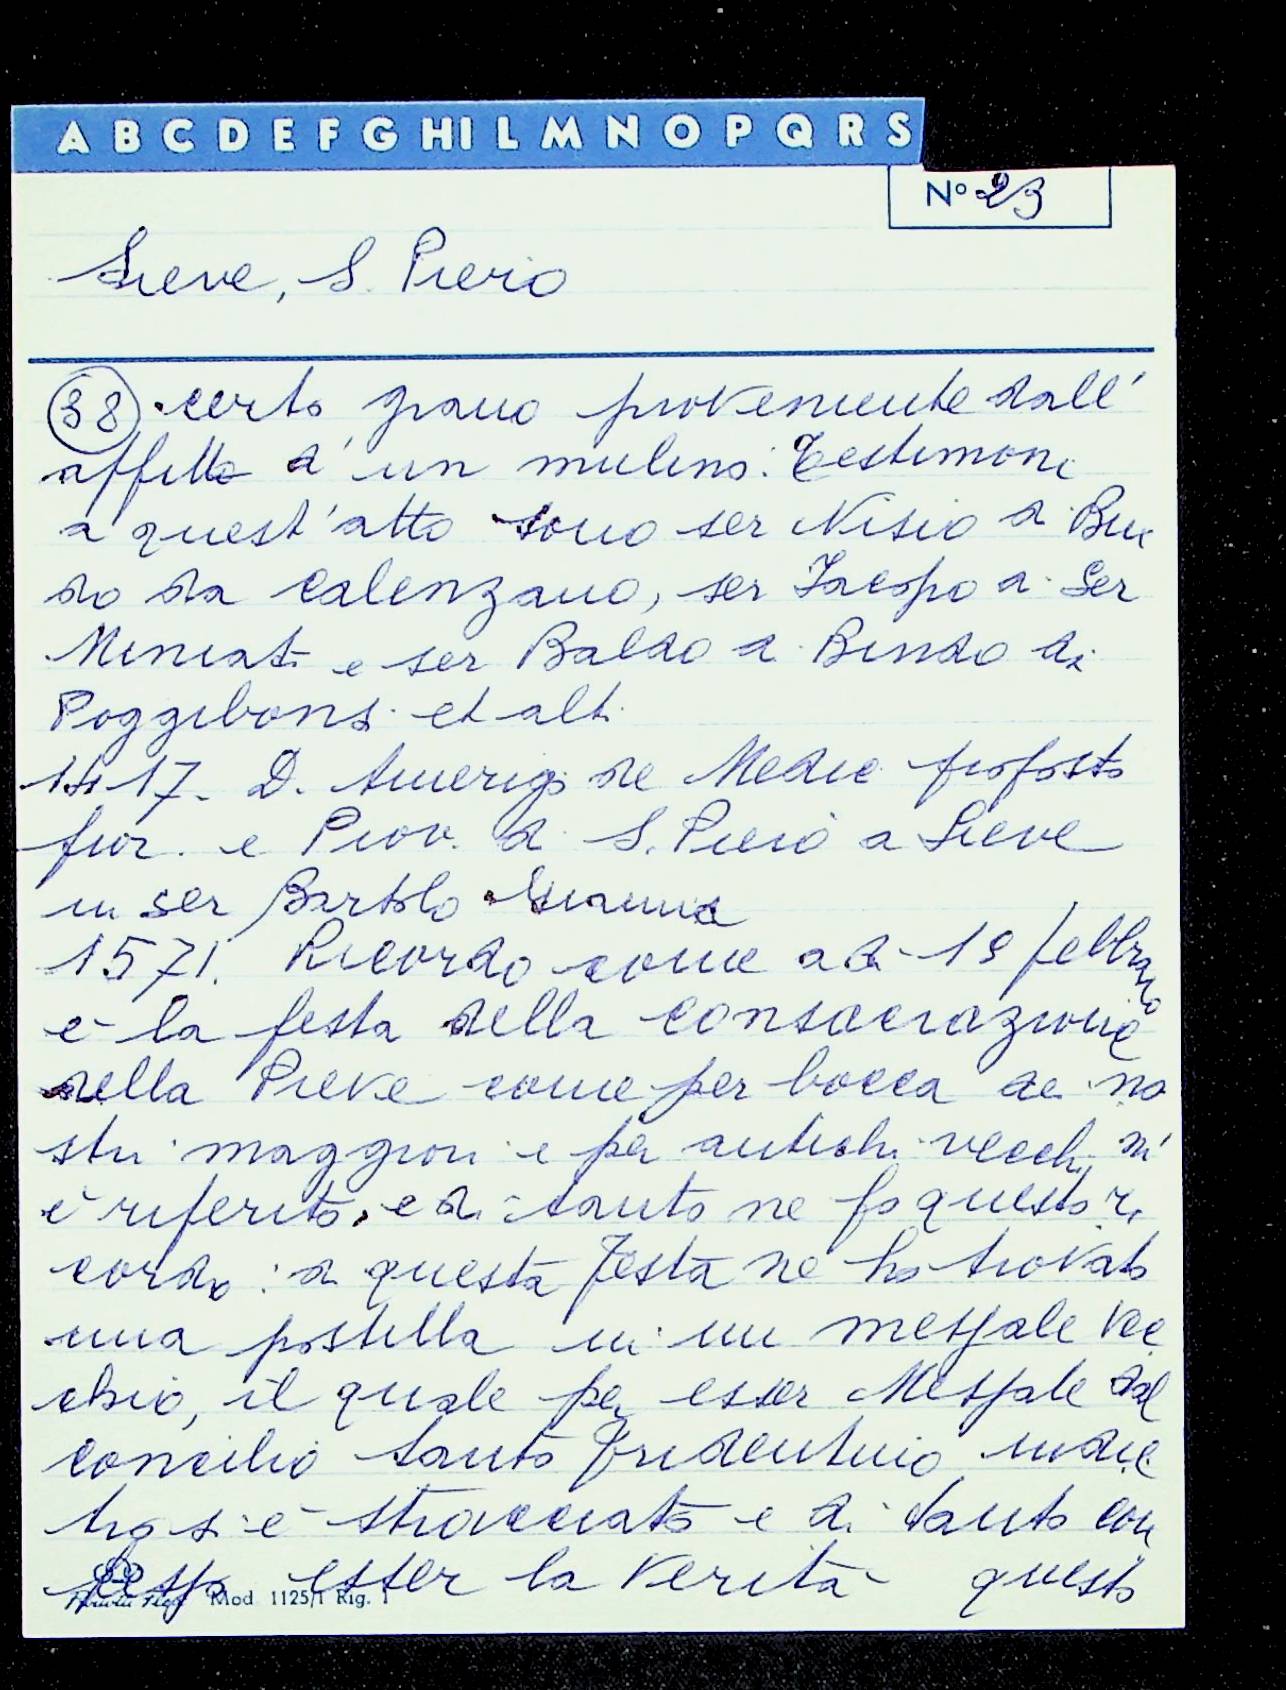 A B C D E F G HI L M N O P Q R S
N° 23
Sieve, S. Piero
38 certo grano proveniente dall'
affitto d'un mulino. Testimoni
a quest'atto sono ser Nisio di Bu
do da Calenzano, ser Jacopo di Ser
Miniati e ser Baldo di Bindo di
Poggibonsi et alti
1417. D. Amerigo de Medici proposto
fior. e Piov. di S. Piero a Sieve
in ser Bartolo
1571. Ricordo come a di 19 febbraio
è la festa della consacrazione
della Pieve come per bocca de no
stri maggiori e per antichi vecchi n'
è riferito, e di tanto ne fo questo ri
cordo: di questa festa ne ho trovato
una postilla in un messale vec
chio, il quale per esser Messale dal
concilio santo Tridentino indie
tro si è stracciato e di tanto con
fesso esser la verità questo
Mod 1125/1 Rig. 1